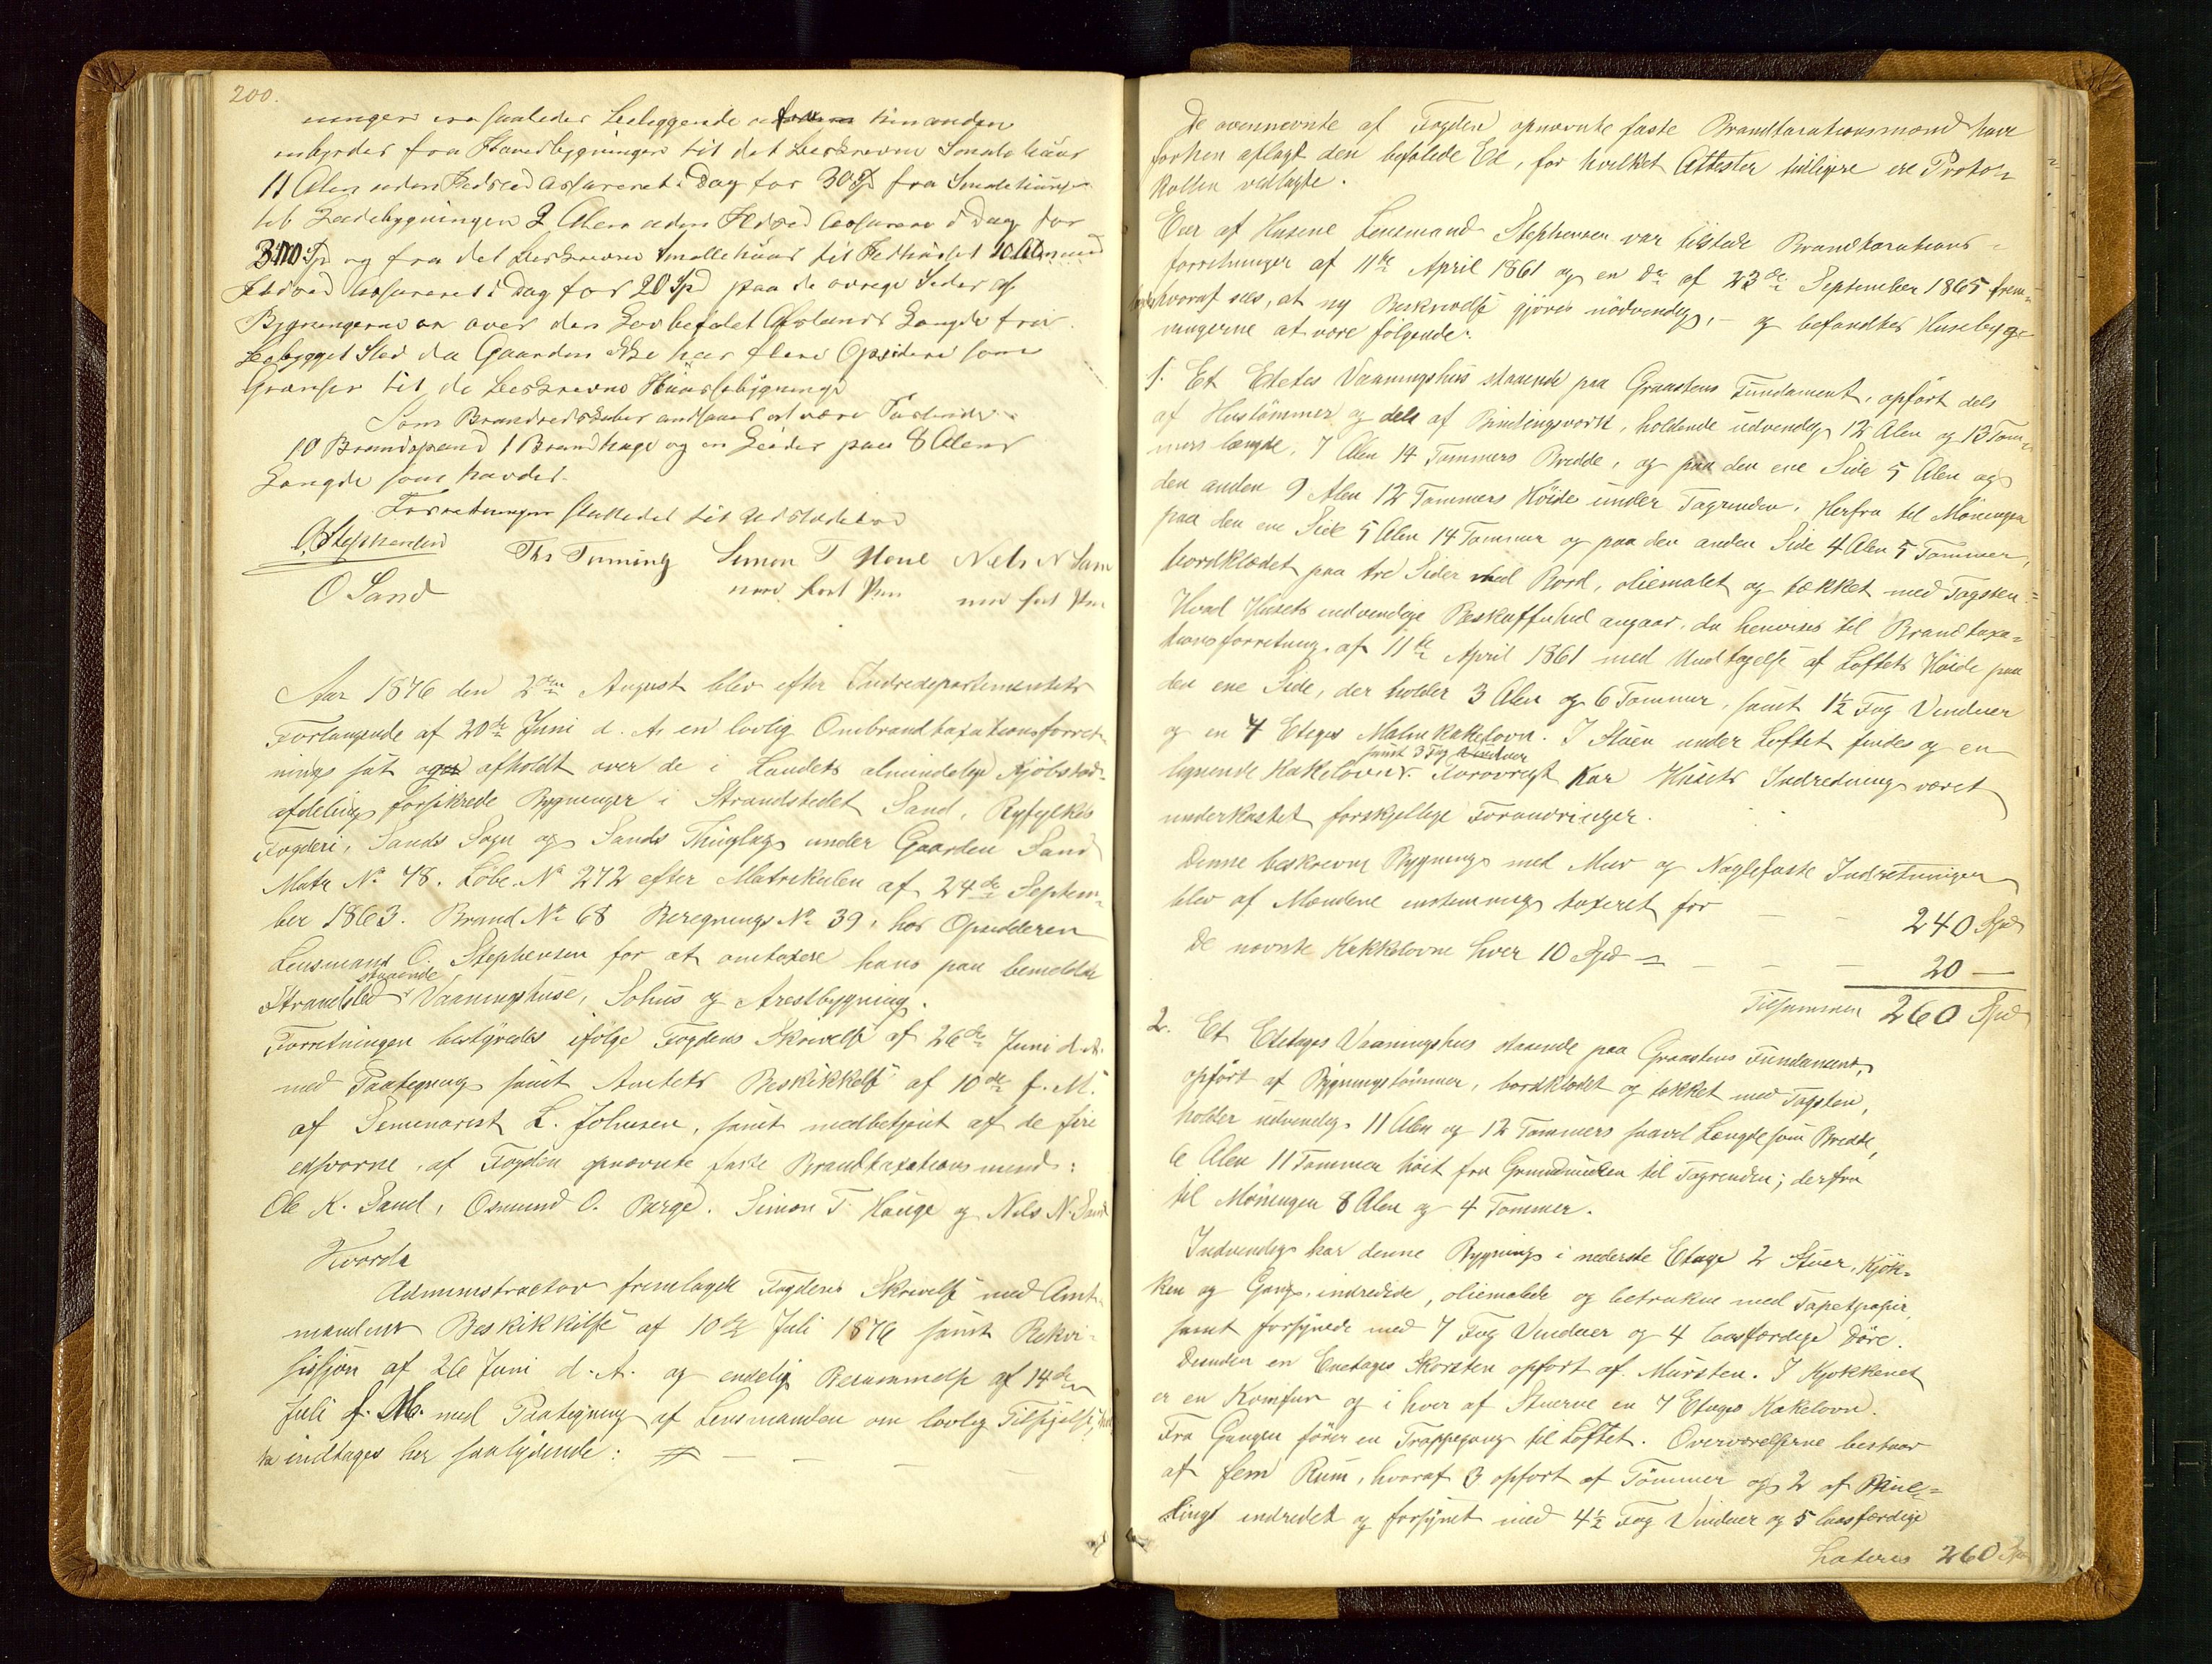 200.
ninger er saaledes beleggende a hinanden
indbyrdes fra Hovedbygningen til det beskrevne Smalehuus
11 Alen uden Ildsted assureret i Dag for 30 Spd fra Smalehuuset
til Ladebygningen 2 Alen uden Ildsted assureret i Dag for
300 Spd og fra det beskrevne Smallehuus til Ildhuuset 10 Alen med
Ildsted assureret i Dag for 20 Spd paa de øvrige Sider af
Bygningerne er over den Lovbefalet Afstands Længde fra
bebygget Sted da Gaarden ikke har flere Opsidere som
Grænser til de beskrevne Huusebygninger
Som Brandredskaber ansaaes at være
10 Brandspand 1 Brandhage og en Leider paa 8 Alens
Længde som havdes.
Forretningen sluttedes til Udstedelse
O. Stephensen
Ths Tuming Simon T Houe Nels N Sam
O Sand med ført Pen med ført Pen
Aar 1876 den 2den August blev efter Indredepartementets
Forlangende af 20de Juni d. A. en lovlig Ombrandtaxationsforret-
nings sat og afholdt over de i Landets almindelige Kjøbstæds-
afdeling forsikrede Bygninger i Strandstedet Sand, Ryfylkes
Fogderi, Sands Sogn og Sands Thinglag under Gaarden Sand
Matr No 48. Løbe No 272 efter Matrikulen af 24de Septem-
ber 1863. Brand No 68 Beregnings No 39, hos Opsidderen
Lensmand O. Stephensen for at omtaxere hans paa bemeldte
staaende
Strandsted Vaaningshuse, Søhus og Arestbygning.
Forretningen bestyredes ifølge Fogdens Skrivelse af 26de Juni d. A.
med Paategning samt Amtets Beskikkelse af 10de f. M.
af Semenarist L. Johnsen, samt medbetjent af de fire
edsvorne, af Fogden opnævnte faste Brandtaxationsmend:
Ole K. Sand, Osmund O. Barge. Simon T. Hauge og Nils N. Sand
Hvorda
Administrator fremlagde Fogdens Skrivelse med Amt-
mandens Beskikkelse af 10de Juli 1876 samt Rekvi-
sisjon af 26 Juni d. A. og endelig Berammelse af 14de
Juli f. M. med Paategning af Lensmanden om lovlig Tilsigelse,
indtages her saalydende: # — — — —
De ovennevnte af Fogden opnevnte faste Brandtaxationsmænd have
forhen aflagt den befalede Ed, for hvilket Attester tidligere ere Proto-
kollen vedlagte.
Eier af Husene Lensmand Stephensen var tilstede Brandtaxations-
forretninger af 11te April 1861 og en do af 23de September 1865 frem-
hvoraf sees, at ny Beskrivelse gjøres nødvendig, - og befandtes Husebyg-
ningerne at være følgende:
1. Et Etetes Vaaningshus staaende paa Graastens Fundament, opført dels
af Hustømmer og dels af Bindingsverk, holdende udvendig 12 Alen og 13 Tom-
mers længde, 7 Alen 14 Tommers Bredde, og paa den ene Side 5 Alen og
den anden 9 Alen 12 Tommers Höide under Tagrenden, Herfra til Möningen
paa den ene Side 5 Alen 14 Tommer og paa den anden Side 4 Alen 5 Tommer,
bordklædet paa tre Sider med Bord, oliemalet og tækket med Tagsten.
Hvad Husets indvendige Beskaffenhed angaar, da henvises til Brandtaxa-
tionsforretning af 11te April 1861 med Undtagelse af Loftets Höide paa
den ene Side, der holder 3 Alen og 6 Tommer, samt 1½ Fag Vinduer
og en 4 Etages Malmkakelovn. I Stuen under Loftet findes og en
samt 3 Fag Vinduer
lignende Kakelovn. Forövrigt har Husets Indretning været
underkastet forskjellige Forandringer.
Denne beskrevne Bygning med Mur og Naglefaste Indretninger
blev af Mændene enstemmig taxeret for — — 240 Spd
De nævnte Kakkelovne hver 10 Spd = — — — 20 —
Tilsammen 260 Spd
2. Et Etetages Vaaningshus staaende paa Graastens Fundament,
opført af Bygningstømmer, bordklædet og tækket med Tagsten,
holder udvendig 11 Alen og 12 Tommers saavel Længde som Bredde,
6 Alen 11 Tommer höit fra Grundmuren til Tagrenden; derfra
til Möningen 8 Alen og 4 Tommer.
Indvendig har denne Bygning i nederste Etage 2 Stuer, Kjök-
ken og Gang, indredede, oliemalede og betrukne med Tapetpapir,
samt forsynede med 7 Fag Vinduer og 4 laasfærdige Döre.
Desuden en Enetages Skorsten opført af Mursten. I Kjøkkenet
er en Komfur og i hver af Stuerne en 4 Etages Kakelovn.
Fra Gangen fører en Trappegang til Loftet. Overværelserne bestaar
af fem Rum, hvoraf 3 opført af Tømmer og 2 af Bind-
ings indredet og forsynet med 4½ Fag Vinduer og 5 laasfærdige
Lateris 260 Spd